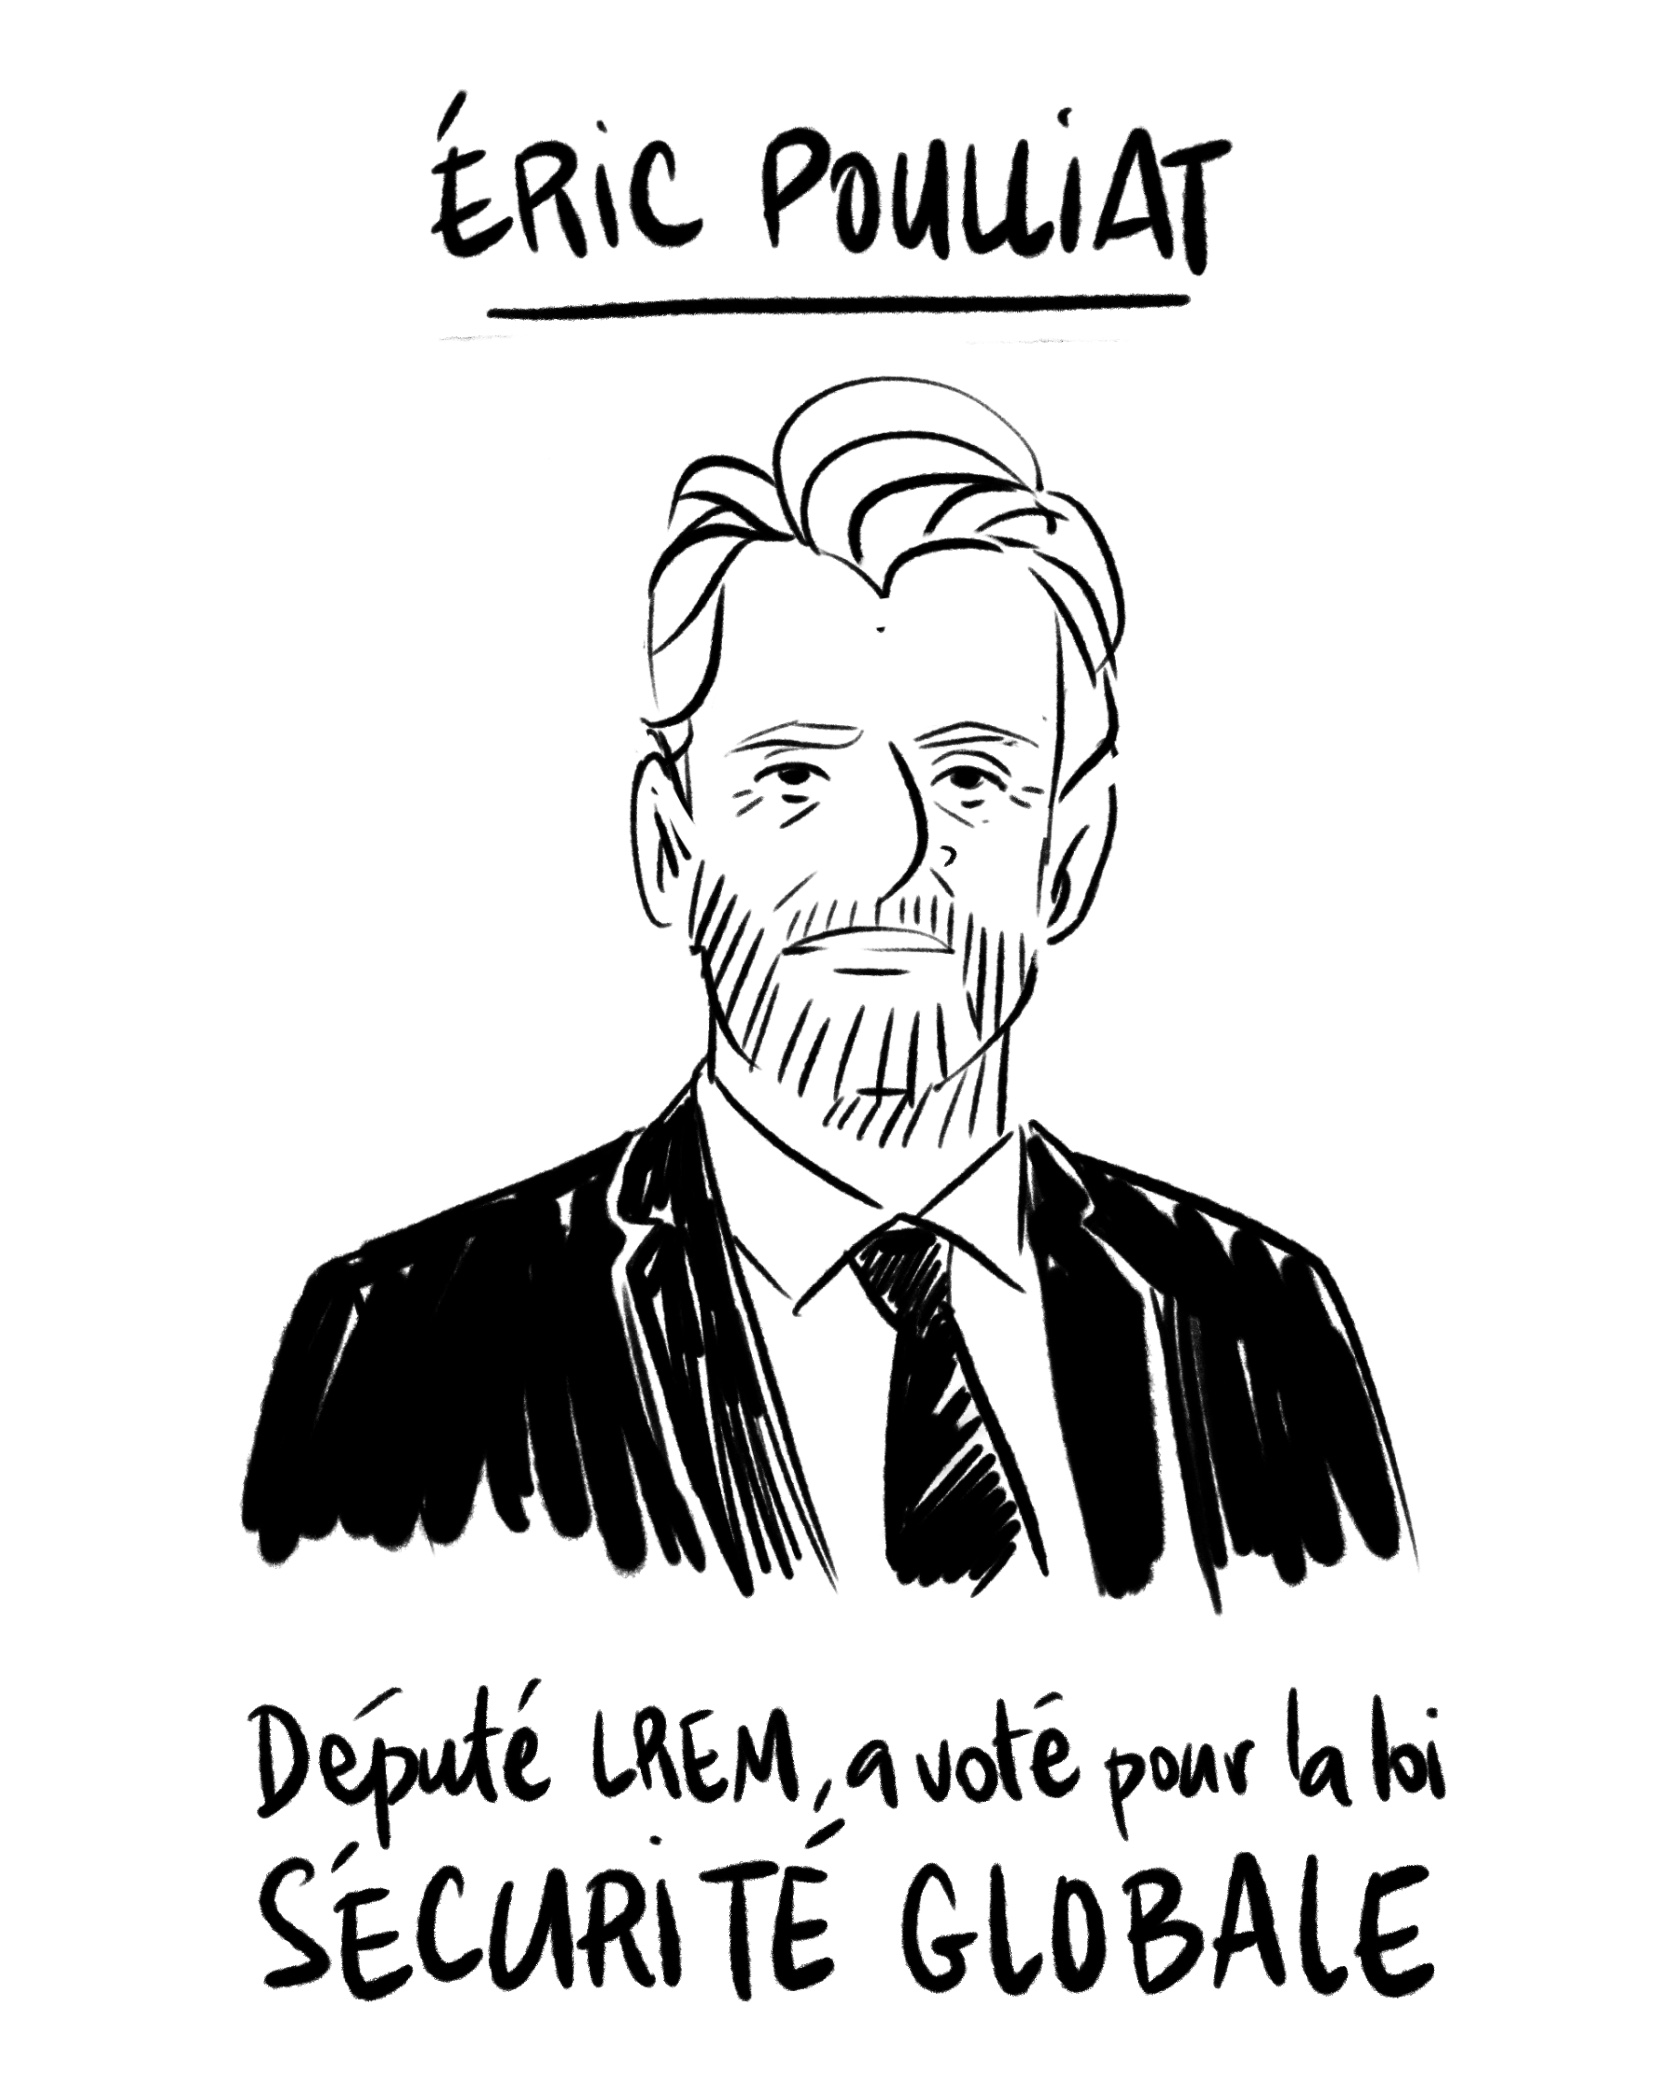 ÉRiC POULLiAT
Député LREM, a voté pour la loi
SÉCURiTÉ GLOBALE